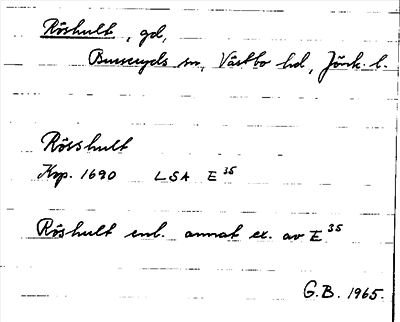 Röshult, gd,
Burseryds sn, Västbo hd, Jönk. l.
Rösshult
Kop. 1690 LSA E 35
Röshult enl. annat ex. av E 35
G.B. 1965.